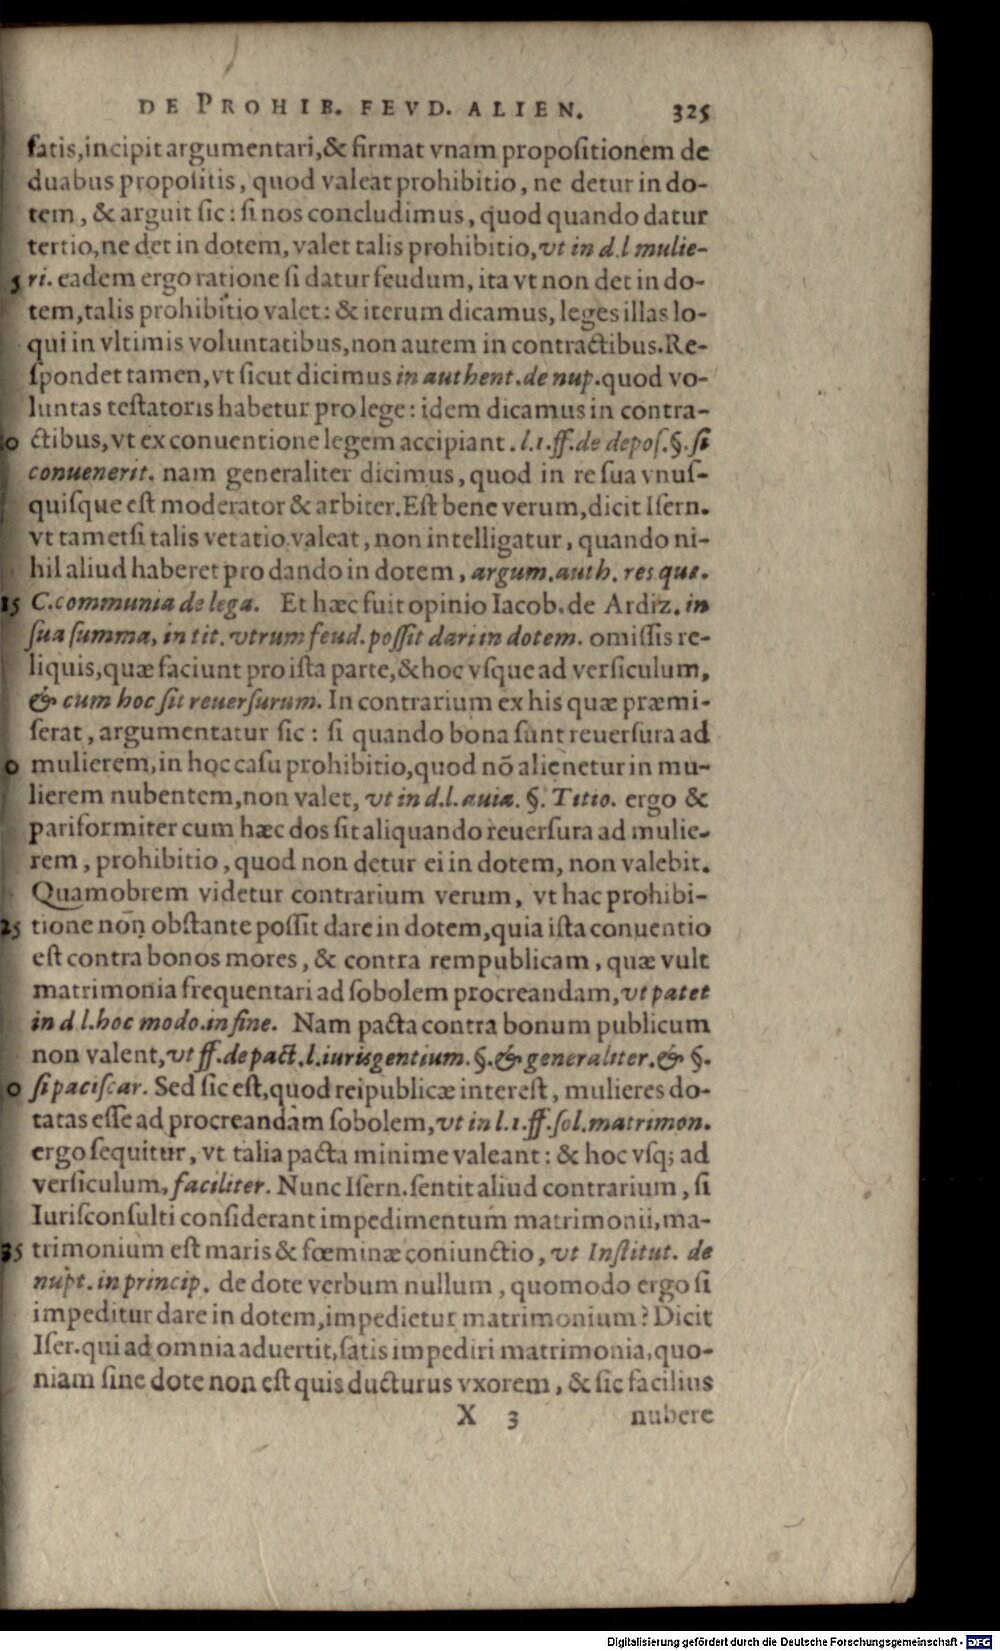 DE PROHIB. FEVD. ALIEN. 325
ſatis, incipit argumentari, & firmat vnam propoſitionem de
duabus propoſitis, quod valeat prohibitio, ne detur in do-
tem, & arguit ſic: ſi nos concludimus, quod quando datur
tertio, ne det in dotem, valet talis prohibitio, vt in d.l mulie-
5 ri. eadem ergo ratione ſi datur feudum, ita vt non det in do-
tem, talis prohibitio valet: & iterum dicamus, leges illas lo-
qui in vltimis voluntatibus, non autem in contractibus. Re-
ſpondet tamen, vt ſicut dicimus in authent. de nup. quod vo-
luntas teſtatoris habetur pro lege: idem dicamus in contra-
10 ctibus, vt ex conuentione legem accipiant. l.1.ff. de depoſ. §. ſi
conuenerit. nam generaliter dicimus, quod in re ſua vnuſ-
quiſque eſt moderator & arbiter. Eſt bene verum, dicit Iſern.
vt tametſi talis vetatio valeat, non intelligatur, quando ni-
hil aliud haberet pro dando in dotem, argum. auth. res que.
15 C. communia de lega. Et hæc fuit opinio Iacob. de Ardiz. in
ſua ſumma, in tit. vtrum feud. poſſit dari in dotem. omiſſis re-
liquis, quæ faciunt pro iſta parte, & hoc vſque ad verſiculum,
& cum hoc ſit reuerſurum. In contrarium ex his quæ præmi-
ſerat, argumentatur ſic: ſi quando bona ſunt reuerſura ad
0 mulierem, in hoc caſu prohibitio, quod nō alienetur in mu-
lierem nubentem, non valet, vt in d.l. auia. §. Titio. ergo &
pariformiter cum hæc dos ſit aliquando reuerſura ad mulie-
rem, prohibitio, quod non detur ei in dotem, non valebit.
Quamobrem videtur contrarium verum, vt hac prohibi-
25 tione non obſtante poſſit dare in dotem, quia iſta conuentio
eſt contra bonos mores, & contra rempublicam, quæ vult
matrimonia frequentari ad ſobolem procreandam, vt patet
in d l. hoc modo. in fine. Nam pacta contra bonum publicum
non valent, vt ff. de pact. l. iurisgentium. §. & generaliter. & §.
0 ſi paciſcar. Sed ſic eſt, quod reipublicæ intereſt, mulieres do-
tatas eſſe ad procreandam ſobolem, vt in l.1.ff. ſol. matrimon.
ergo ſequitur, vt talia pacta minime valeant: & hoc vſq; ad
verſiculum, faciliter. Nunc Iſern. ſentit aliud contrarium, ſi
Iuriſconſulti conſiderant impedimentum matrimonii, ma-
35 trimonium eſt maris & fœminæ coniunctio, vt Inſtitut. de
nupt. in princip. de dote verbum nullum, quomodo ergo ſi
impeditur dare in dotem, impedietur matrimonium? Dicit
Iſer. qui ad omnia aduertit, ſatis impediri matrimonia, quo-
niam ſine dote non eſt quis ducturus vxorem, & ſic facilius
X 3 nubere
Digitalisierung gefördert durch die Deutsche Forschungsgemeinschaft - DFG